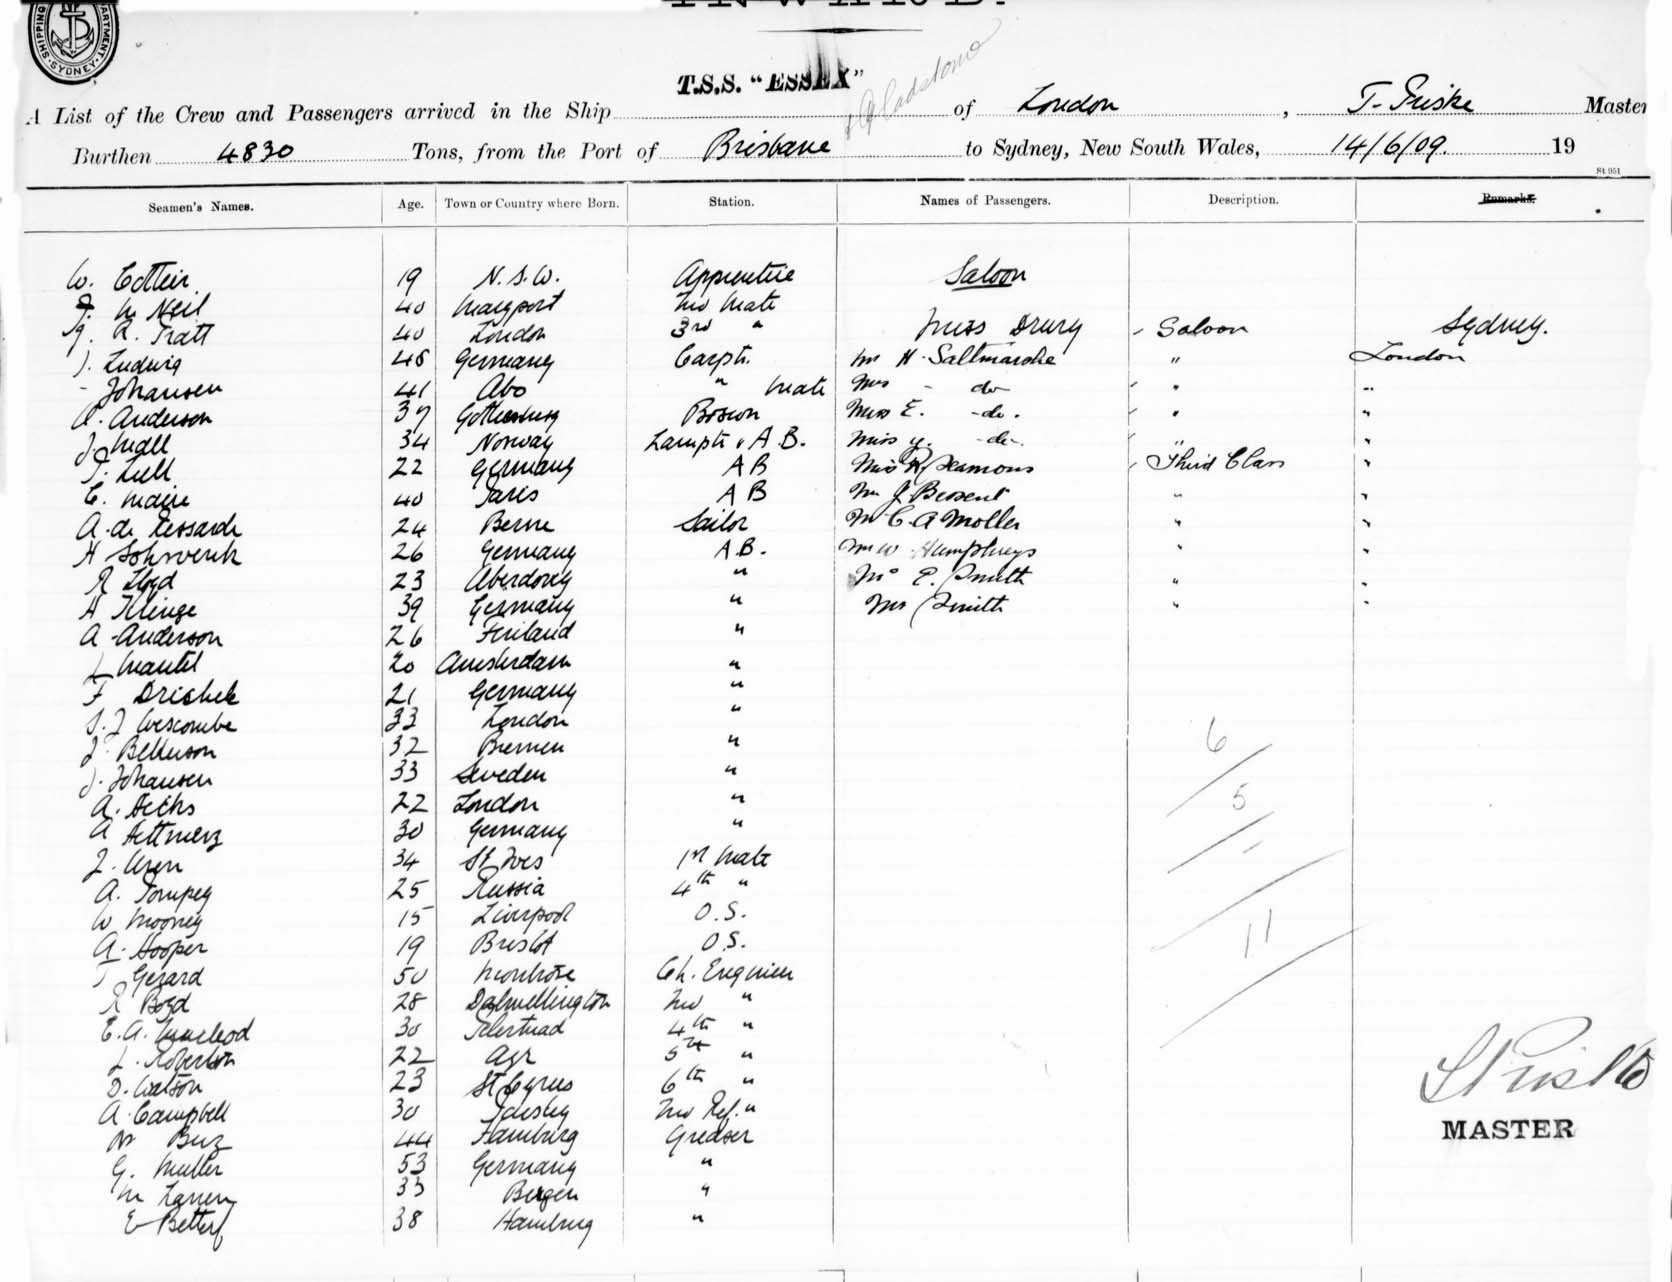 INWARD.
SHIPPING DEPARTMENT. SYDNEY.
T.S.S. "ESSEX"
& Gladstone
A List of the Crew and Passengers arrived in the Ship of London, T. Friske Master
Burthen 4830 Tons, from the Port of Brisbane to Sydney, New South Wales, 14/6/09. 19
St 951
Seamen's Names. Age. Town or Country where Born. Station. Names of Passengers. Description. Remarks.
W. 19 N.S.W. Apprentice Saloon
Mc Neil 40 Maryport 2nd Mate
A. Pratt 40 London 3rd " Miss Drury Saloon Sydney.
J. Ludwig 48 Germany Carptr. Mr H. Saltmarshe " London
- Johansen 41 Abo " Mate Mrs - do " "
A. Anderson 37 Gothenburg Bosun Miss E. - do. " "
J. Mall 34 Norway Lamptr & A.B. Miss y. - do. " "
T. Lull 22 Germany A B Third Class "
C. 40 Paris A B Mr J Bessent " "
A. de 24 Berne Sailor Mr C. A Moller " "
H 26 Germany A.B. Mr W Humphreys " "
R Lloyd 23 Aberdovey " E. Smith " "
H Klinge 39 Germany " Mrs Smith " "
A Anderson 26 Finland "
L Mantel 20 Amsterdam "
F 21 Germany "
S. J Wescombe 33 London "
J. 32 Bremen "
J. Johansen 33 Sweden "
A. 22 London "
A 30 Germany "
J. Uren 34 St Ives 1st Mate
A. Pompey 25 Russia 4th "
W Mooney 15 Liverpool O.S.
A. Hooper 19 Bristol O.S.
T Gerard 50 Montrose Ch. Engineer
R Boyd 28 Dalmellington 2nd "
E. A. Macleod 30 4th "
L. Robertson 22 Ayr 5th "
D. Watson 23 St Cyrus 6th "
A. Campbell 30 Paisley 2nd Ref. "
Buz 44 Hamburg Greaser
G. Muller 53 Germany "
M Larsen 33 Bergen "
E 38 Hamburg "
6
5
11
MASTER